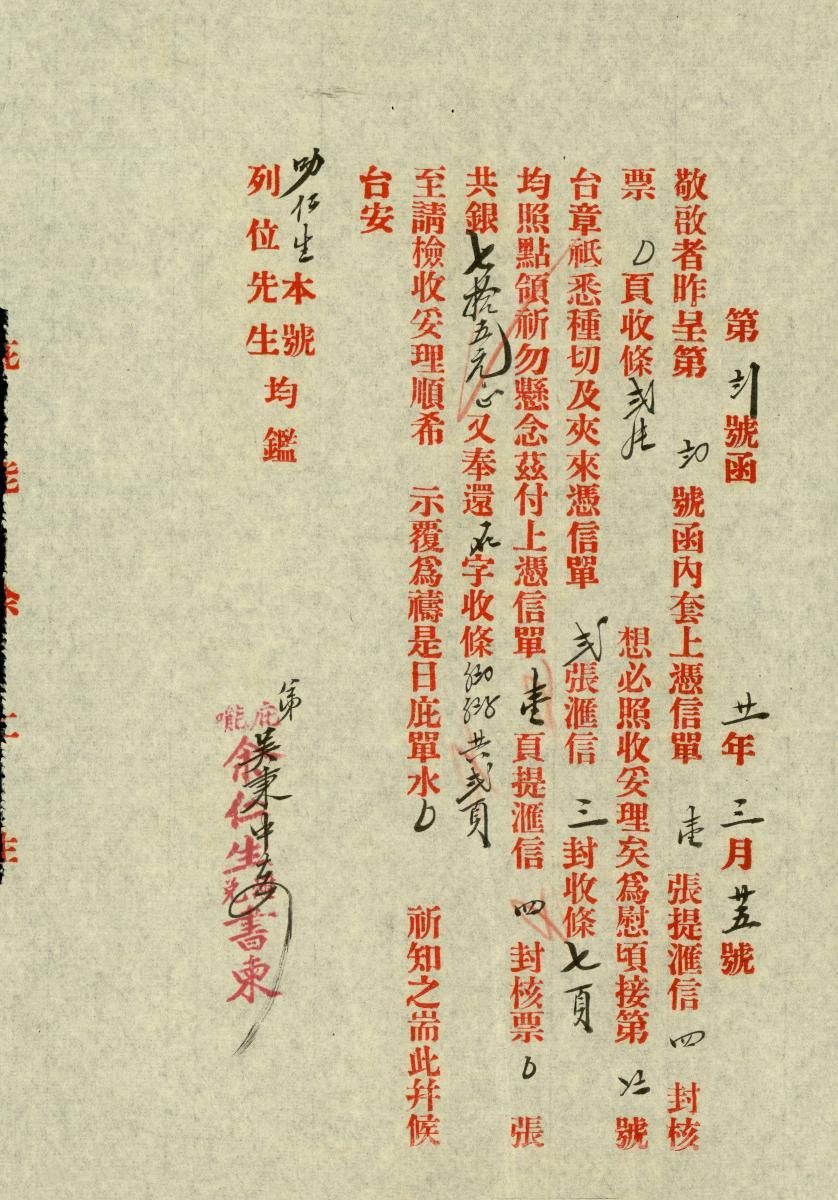 第 〣〢 號函 廿年三月廿五號
敬啟者昨呈第 號函內套上憑信單 壹 張提滙信 四 封核
票 0 頁收條 弍 想必照收妥理矣為慰頃接第 號
台章祗悉種切及夾來憑信單 弍 張滙信 三 封收條 七頁
均照點領祈勿懸念茲付上憑信單 壹 頁提滙信 四 封核票 0 張
共銀七拾五元正又奉還 字收條 共弍頁
至請檢收妥理順希 示覆爲禱是日庇單水 0 祈知之耑此幷候
台安
叻 生本號
列位先生均鑑
弟吳東中
庇能 仁生 書柬